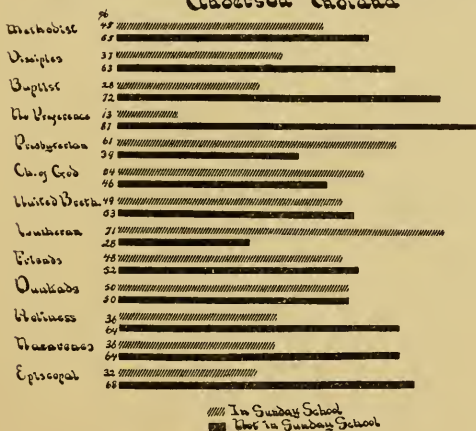 Anderson Indiana
%
Methodist 45
55
Disciples 37
63
Baptist 28
72
No Preference 13
87
Presbyterian 61
39
Ch. of God 54
46
United Breth. 49
53
Lutheran 71
28
Friends 48
52
Dunkads 50
50
Holiness 36
64
Nazarenes 36
64
Episcopal 32
68
In Sunday School
Not in Sunday School